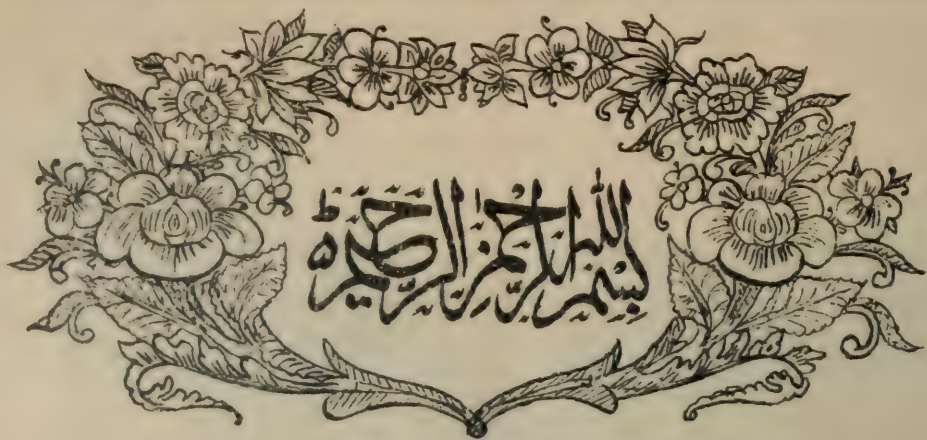 بِسْمِ اللهِ الرَّحْمٰنِ الرَّحِيْمِ ط